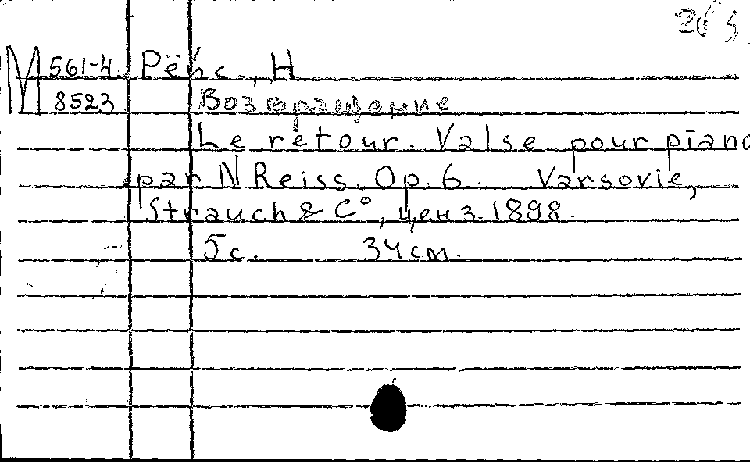 М 561-4 Рейс, Н
8523 Возвращение
Le retour. Valse pour piano
par N Reiss. Op. 6 Varsovie,
Strauch & C°, ценз. 1898
5с. 34см.